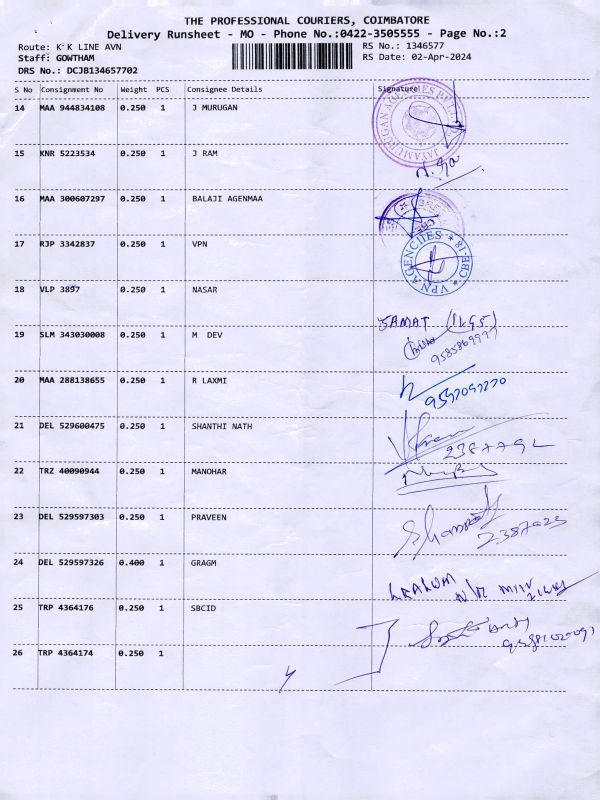 THE PROFESSIONAL COURIERS, COIMBATORE
Delivery Runsheet - MO - Phone No.:0422-3505555 - Page No.:2
Route: K K LINE AVN
RS No.: 1346577
Staff: GOWTHAM
RS Date: 02-Apr-2024
DRS No.: DCJB134657702
S No Consignment No Weight PCS Consignee Details Signature
14 MAA 944834108 0.250 1 J MURUGAN
15 KNR 5223534 0.250 1 J RAM
16 MAA 300607297 0.250 1 BALAJI AGENMAA
17 RJP 3342837 0.250 1 VPN
VPN AGENCIES * CBE-18 *
18 VLP 3897 0.250 1 NASAR
19 SLM 343030008 0.250 1 M DEV
20 MAA 288138655 0.250 1 R LAXMI
21 DEL 529600475 0.250 1 SHANTHI NATH
22 TRZ 40090944 0.250 1 MANOHAR
23 DEL 529597303 0.250 1 PRAVEEN
24 DEL 529597326 0.400 1 GRAGM
25 TRP 4364176 0.250 1 SBCID
26 TRP 4364174 0.250 1